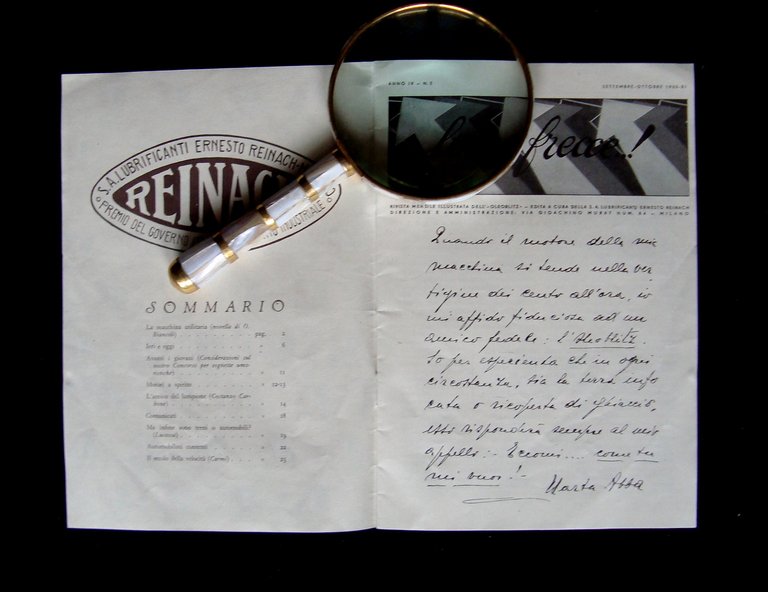 S.A. LUBRIFICANTI ERNESTO REINACH
REINACH
PREMIO DEL GOVERNO INDUSTRIALE
SOMMARIO
La macchina utilitaria (novella di O.
pag. 2
Ieri e oggi 6
Avanti i giovani (Considerazioni sul
nostro Concorso per vignette umo-
ristiche) » 11
Motori a spirito » 12-13
L'amore del lampione (Gaetano Car-
bone) » 14
Comunicati » 18
Ma infine sono treni o automobili?
» 19
Automobilisti contenti » 22
Il modo della velocità » 25
ANNO IX - N. 5
SETTEMBRE-OTTOBRE
frecce..!
RIVISTA MENSILE ILLUSTRATA DELL'«OLEOBLITZ» - EDITA A CURA DELLA S.A. LUBRIFICANTI ERNESTO REINACH
DIREZIONE E AMMINISTRAZIONE: VIA GIOACHINO MURAT NUM. 84 - MILANO
Quando il motore della mia
macchina si tende nella ver
tigine dei cento all'ora, io
mi affido fiduciosa ad un
amico fedele: l'Oleoblitz.
So per esperienza che in ogni
circostanza, sia la terra info
cata o ricoperta di ghiaccio,
esso risponderà sempre al mio
appello: - Eccomi.... come tu
mi vuoi! -
Marta Abba